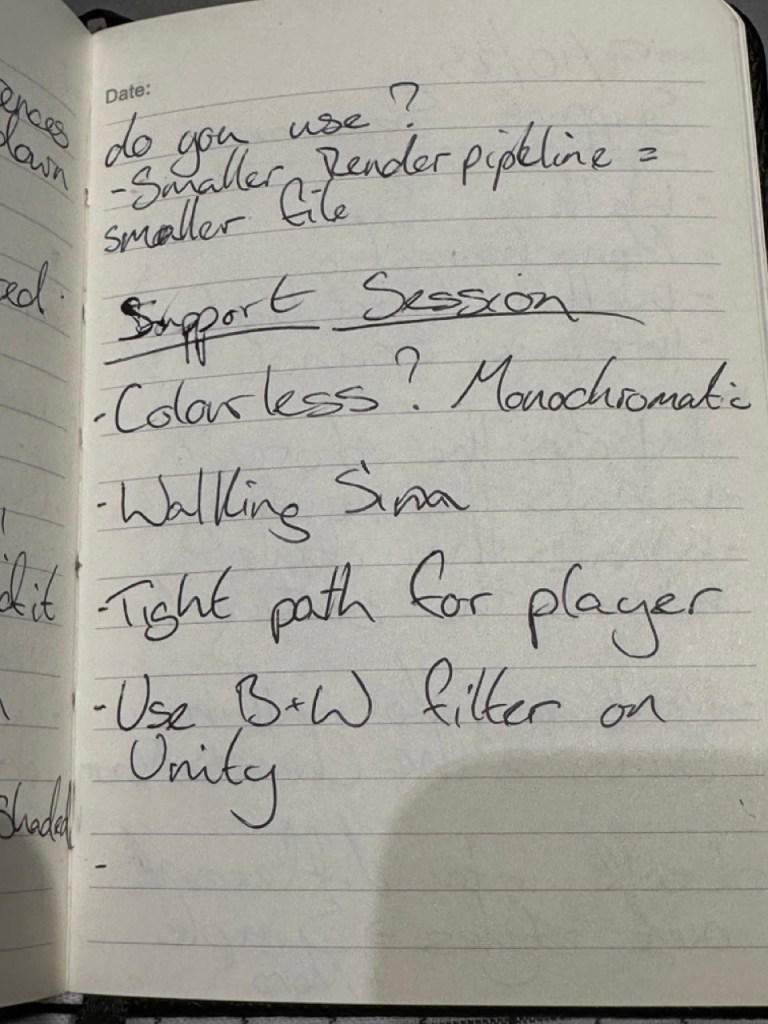 ences
down
ed.
dit
Shaded
Date:
do you use?
-Smaller Render pipeline =
smaller file
Support Session
-Colourless? Monochromatic
-Walking Sim
-Tight path for player
-Use B+W filter on
Unity
-